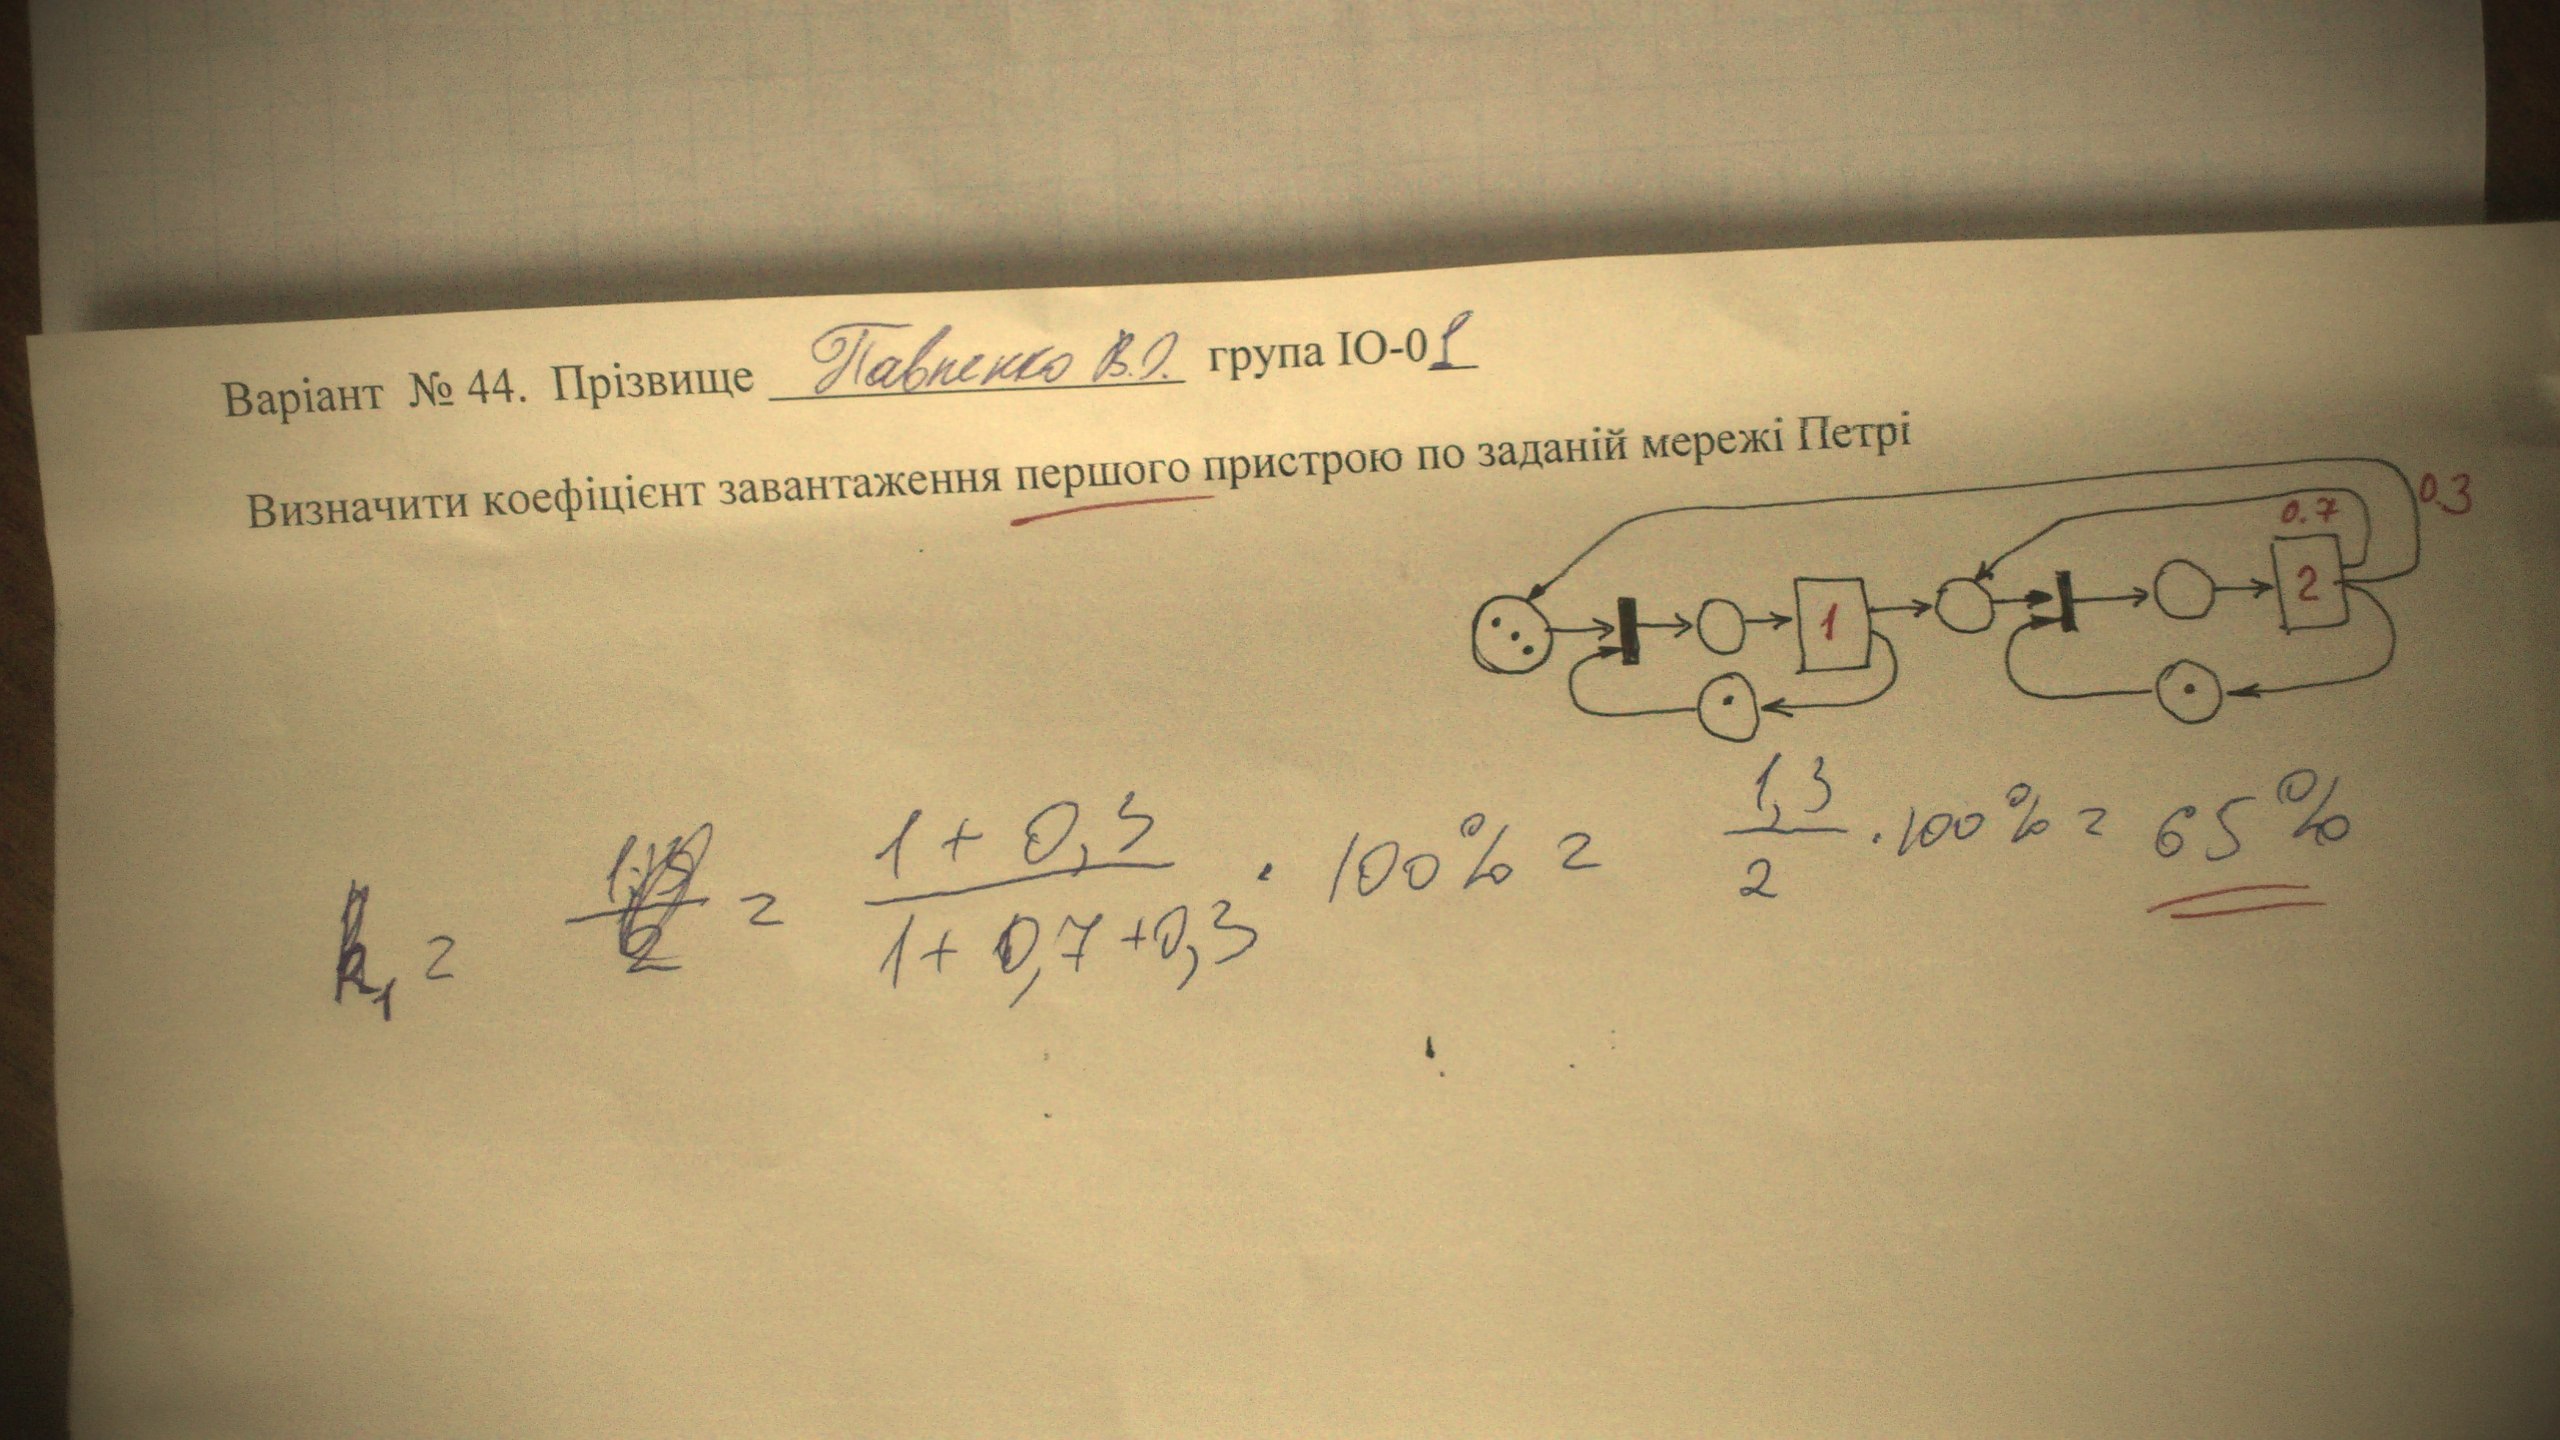 Варіант № 44. Прізвище Павленко В.О. група ІО-01
Визначити коефіцієнт завантаження першого пристрою по заданій мережі Петрі
0.3
0.7
1
2
k₁ = = (1 + 0,3) / (1 + 0,7 + 0,3) · 100% = 1,3 / 2 · 100% = 65%